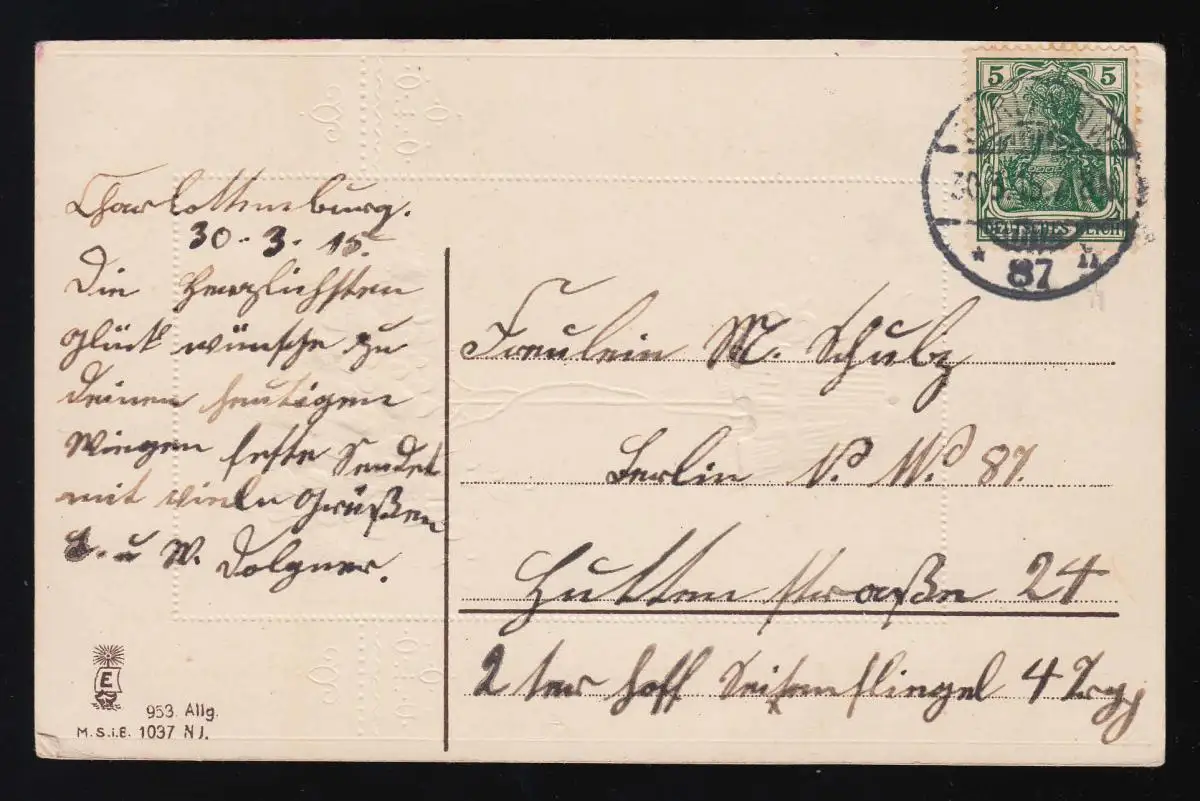 Charlottenburg.
30.3.15.
Die Herzlichsten
Glück wünsche zu
Deinen heutigen
Wiegen feste Sendet
mit vieln Grüßen
u W. Dolgner.
5 5
DEUTSCHES REICH
30.3.15
* 87 h
Freulein M. Schulz
Berlin N. W. 87.
Hutten straße 24
2 ter Hoff Seitenfliegel 4 Trp
E
953. Allg.
M.S.i.B. 1037 NJ.